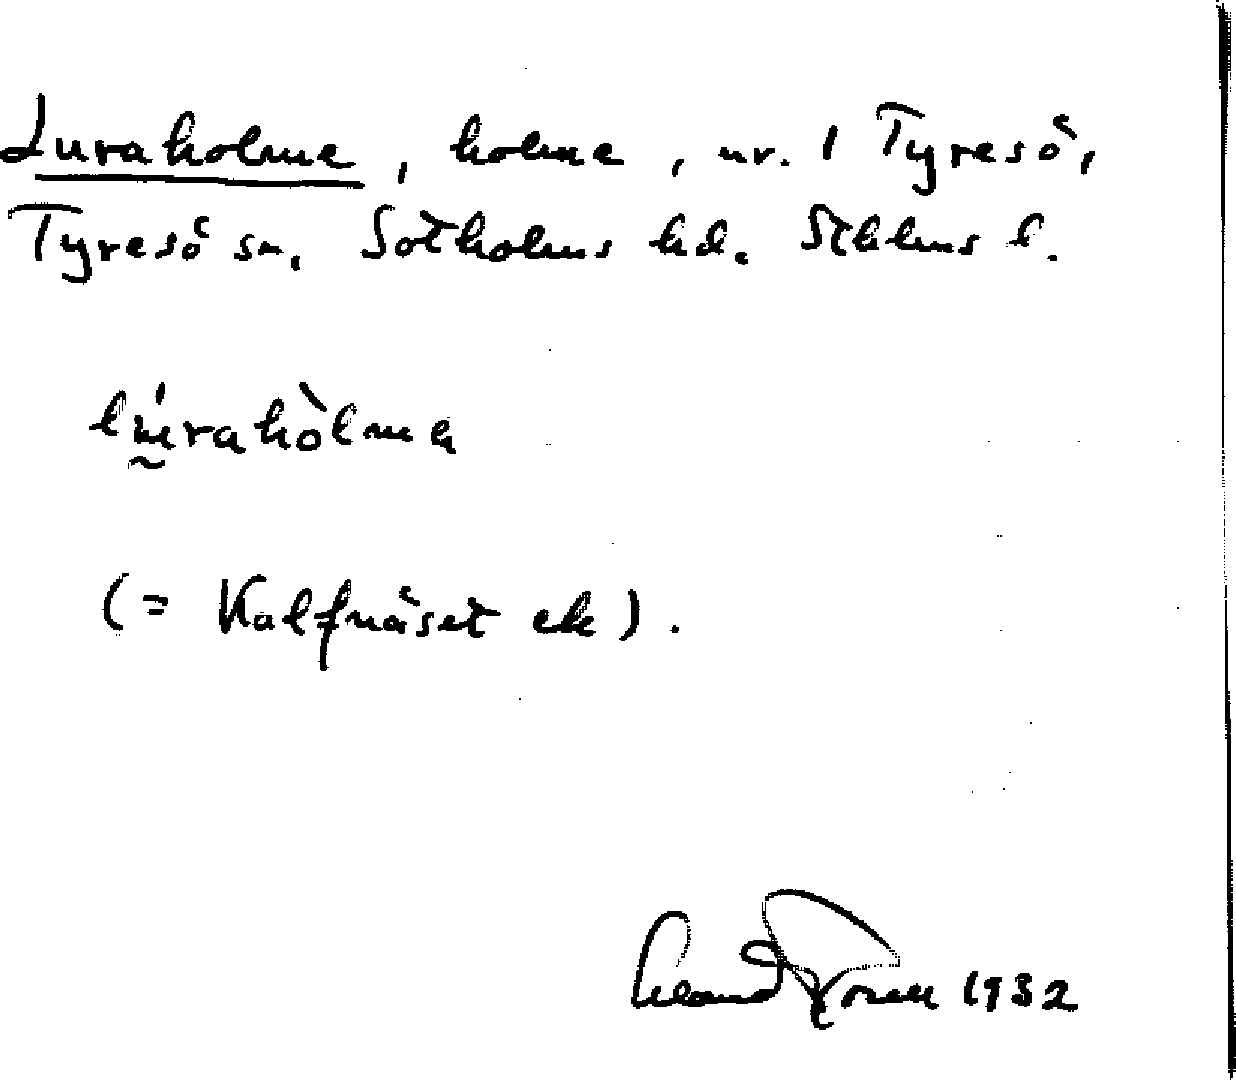 Luraholme, holme, nr. 1 Tyresö,
Tyresö sn. Sotholms hd. Sthlms l.
lúrahòlma
(= Kalfnäset ek).
1932